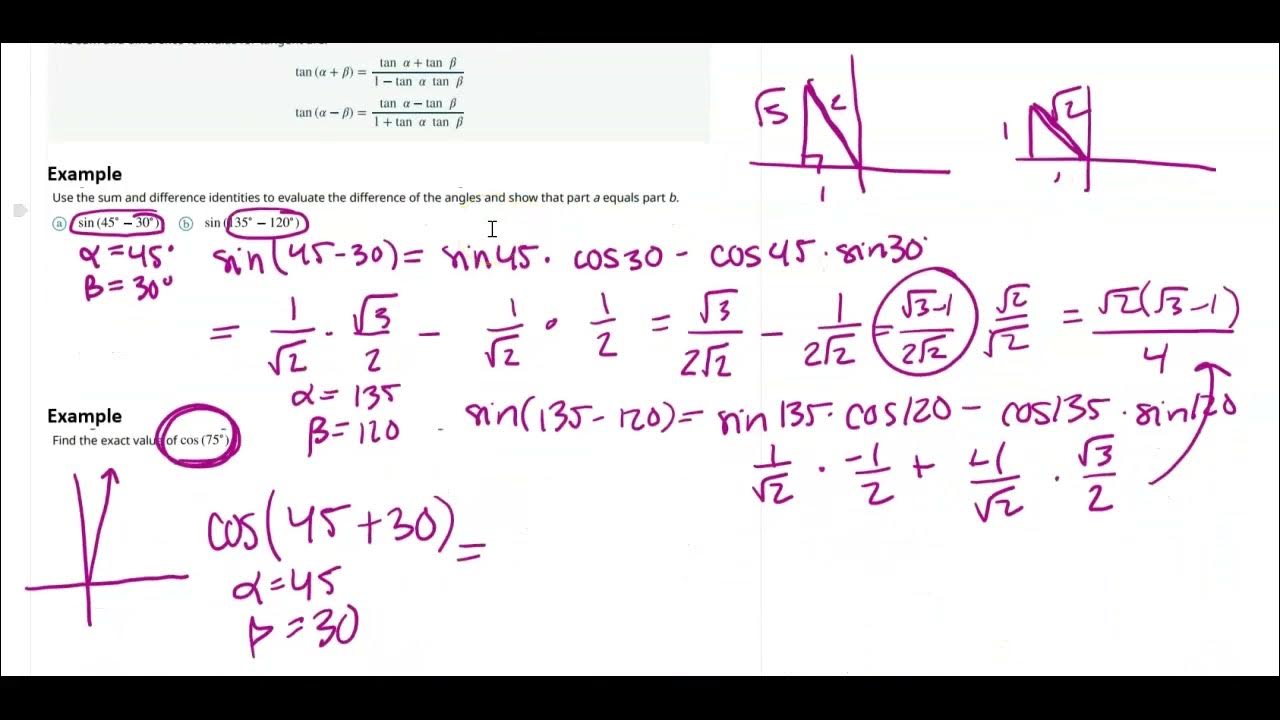 tan (α + β) = tan α + tan β / 1 − tan α tan β
tan (α − β) = tan α − tan β / 1 + tan α tan β
√3 2 1
1 √2 1
Example
Use the sum and difference identities to evaluate the difference of the angles and show that part a equals part b.
ⓐ sin (45° − 30°) ⓑ sin (135° − 120°)
α = 45°
β = 30°
sin(45-30) = sin45 · cos30 - cos45 · sin30°
= 1/√2 · √3/2 - 1/√2 · 1/2 = √3/2√2 - 1/2√2 = √3-1/2√2 √2/√2 = √2(√3-1)/4
α = 135
β = 120
sin(135-120) = sin135 · cos120 - cos135 · sin120
1/√2 · -1/2 + +1/√2 · √3/2
Example
Find the exact value of cos (75°)
cos(45+30) =
α = 45
β = 30